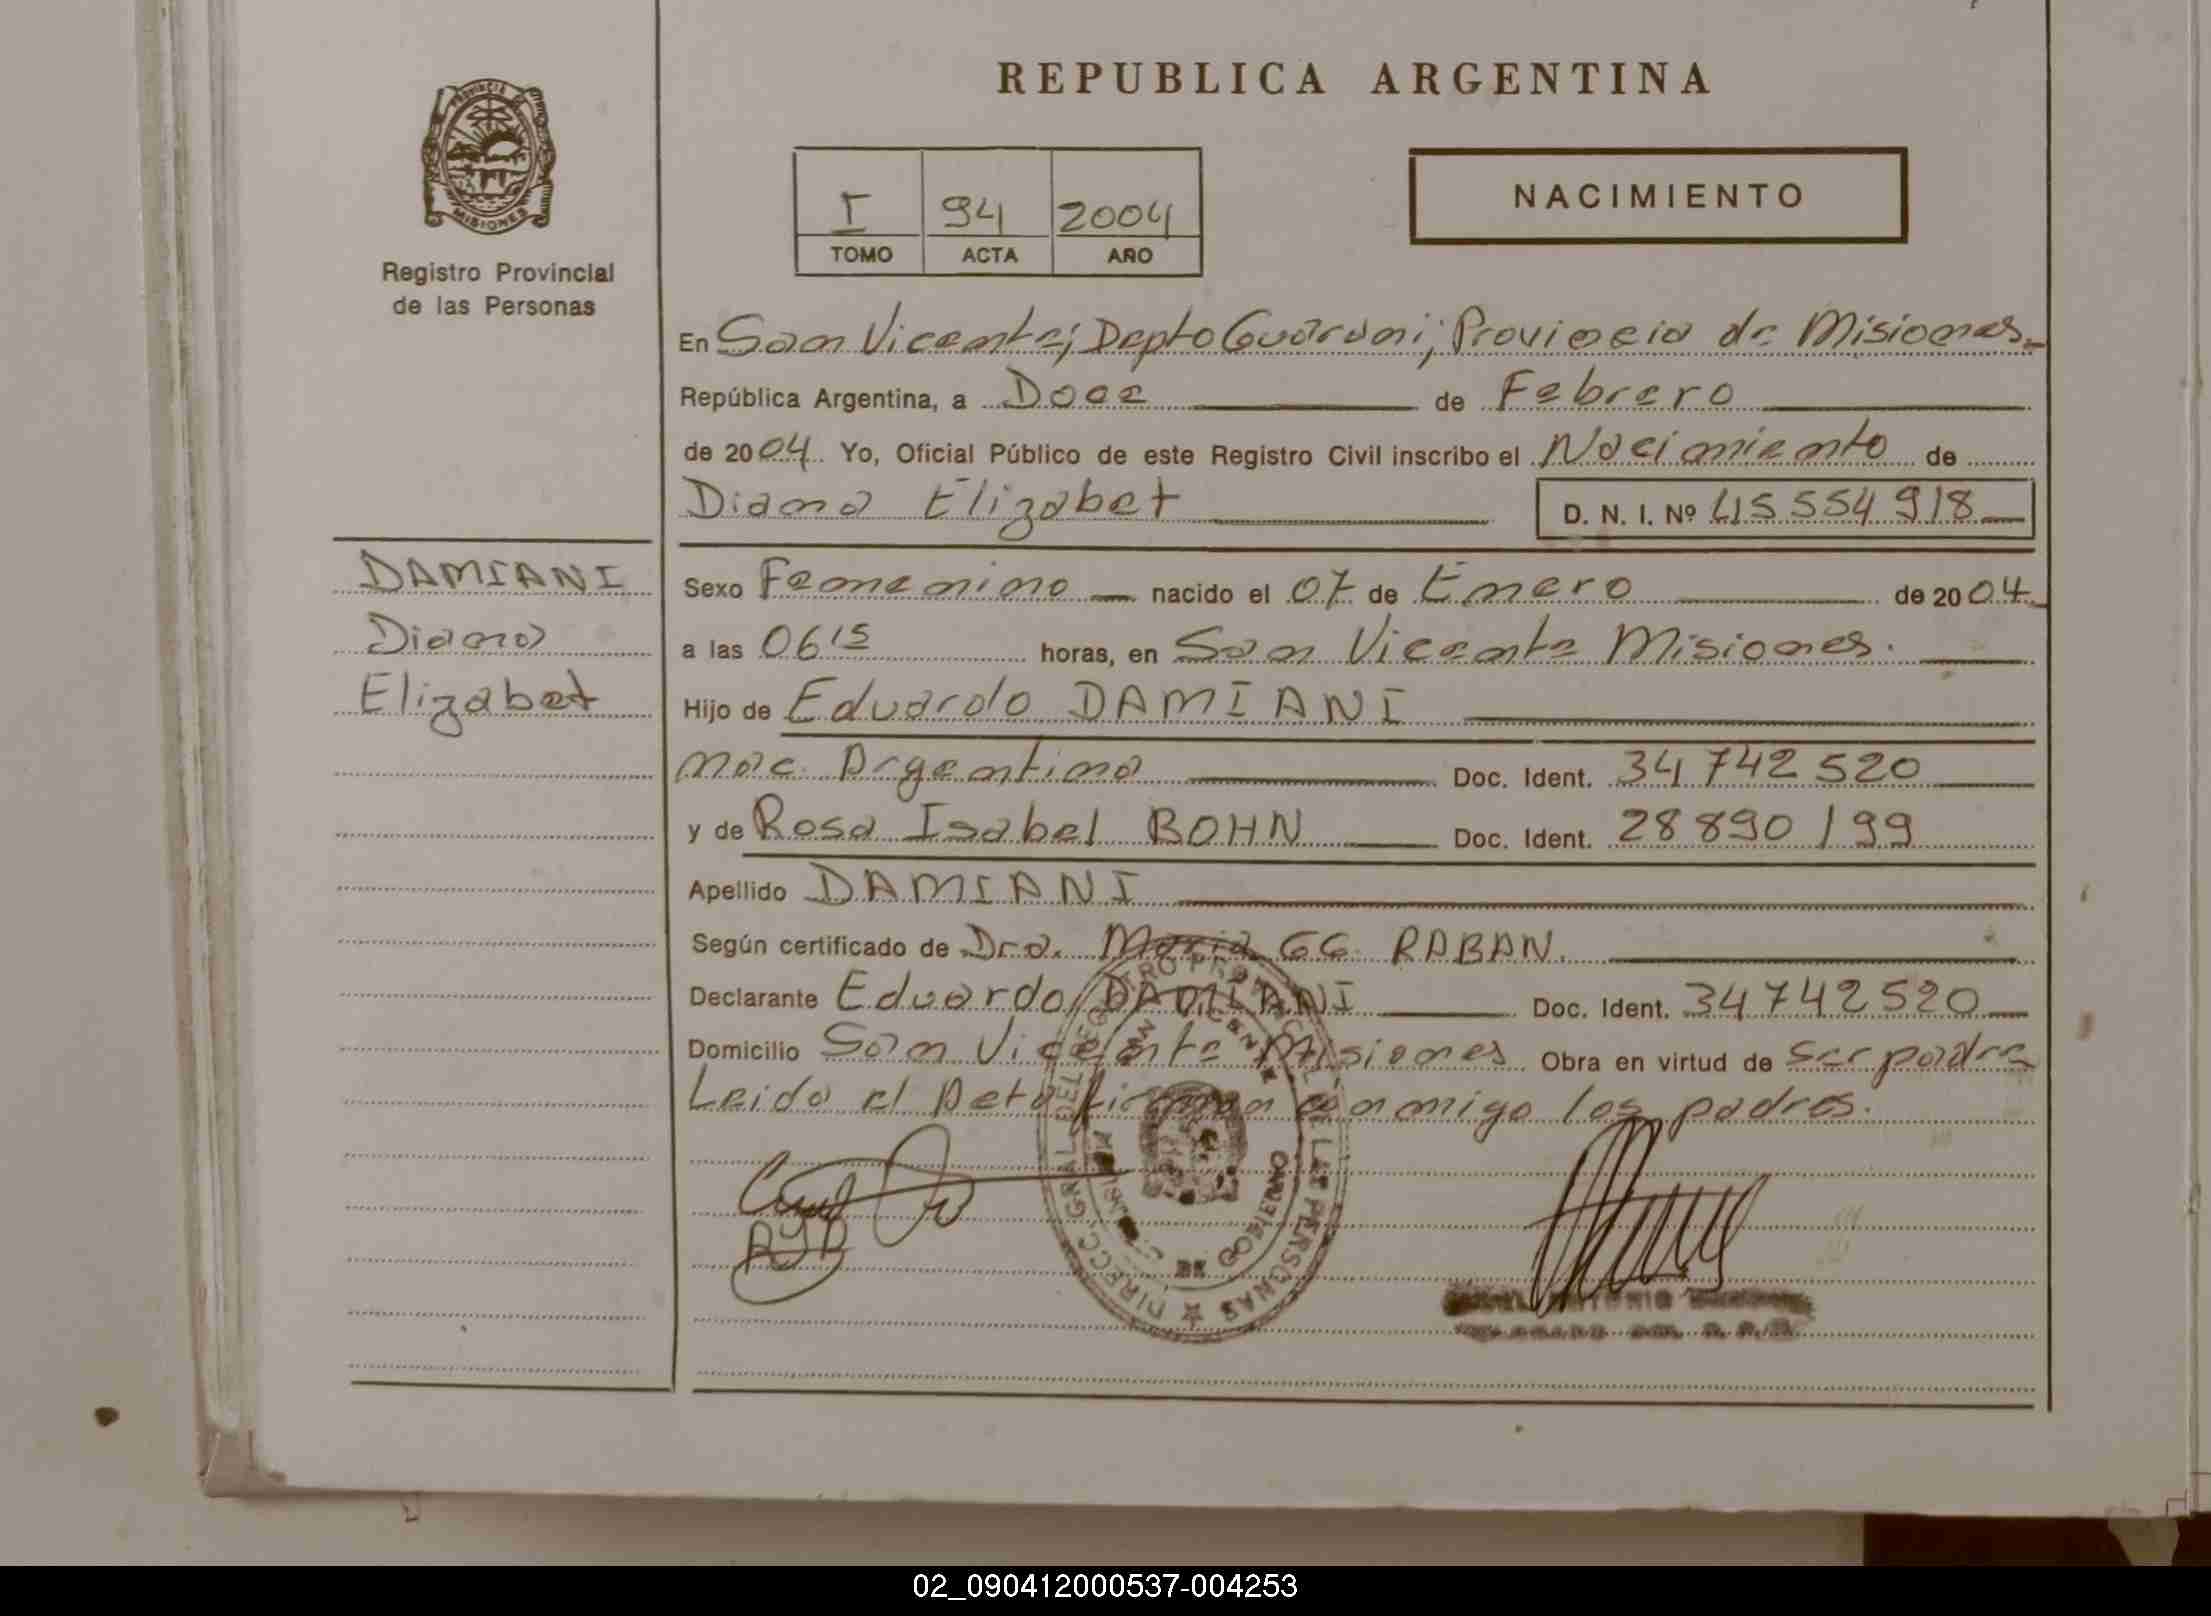 REPUBLICA ARGENTINA
PROVINCIA DE
MISIONES
Registro Provincial
de las Personas
I 94 2004
TOMO ACTA AÑO
NACIMIENTO
En San Vicente; Depto Guarani; Provincia de Misiones.
República Argentina, a Doce de Febrero
de 2004. Yo, Oficial Público de este Registro Civil inscribo el Nacimiento de
Diana Elizabet D. N. I. Nº 45 554 918
DAMIANI
Diana
Elizabet
Sexo Femenino nacido el 07 de Enero de 2004.
a las 06 15 horas, en San Vicente Misiones.
Hijo de Eduardo DAMIANI
nac. Argentina Doc. Ident. 34 742 520
y de Rosa Isabel BOHN Doc. Ident. 28 890 199
Apellido DAMIANI
Según certificado de Dra. Maria GG RABAN.
Declarante Eduardo DAMIANI Doc. Ident. 34 742 520
Domicilio San Vicente Misiones Obra en virtud de ser padre
Leido el Acta firman conmigo los padres.
DIRECC. GRAL. DEL REGISTRO PROVINCIAL DE LAS PERSONAS
SAN VICENTE
DE GOBIERNO
02_090412000537-004253